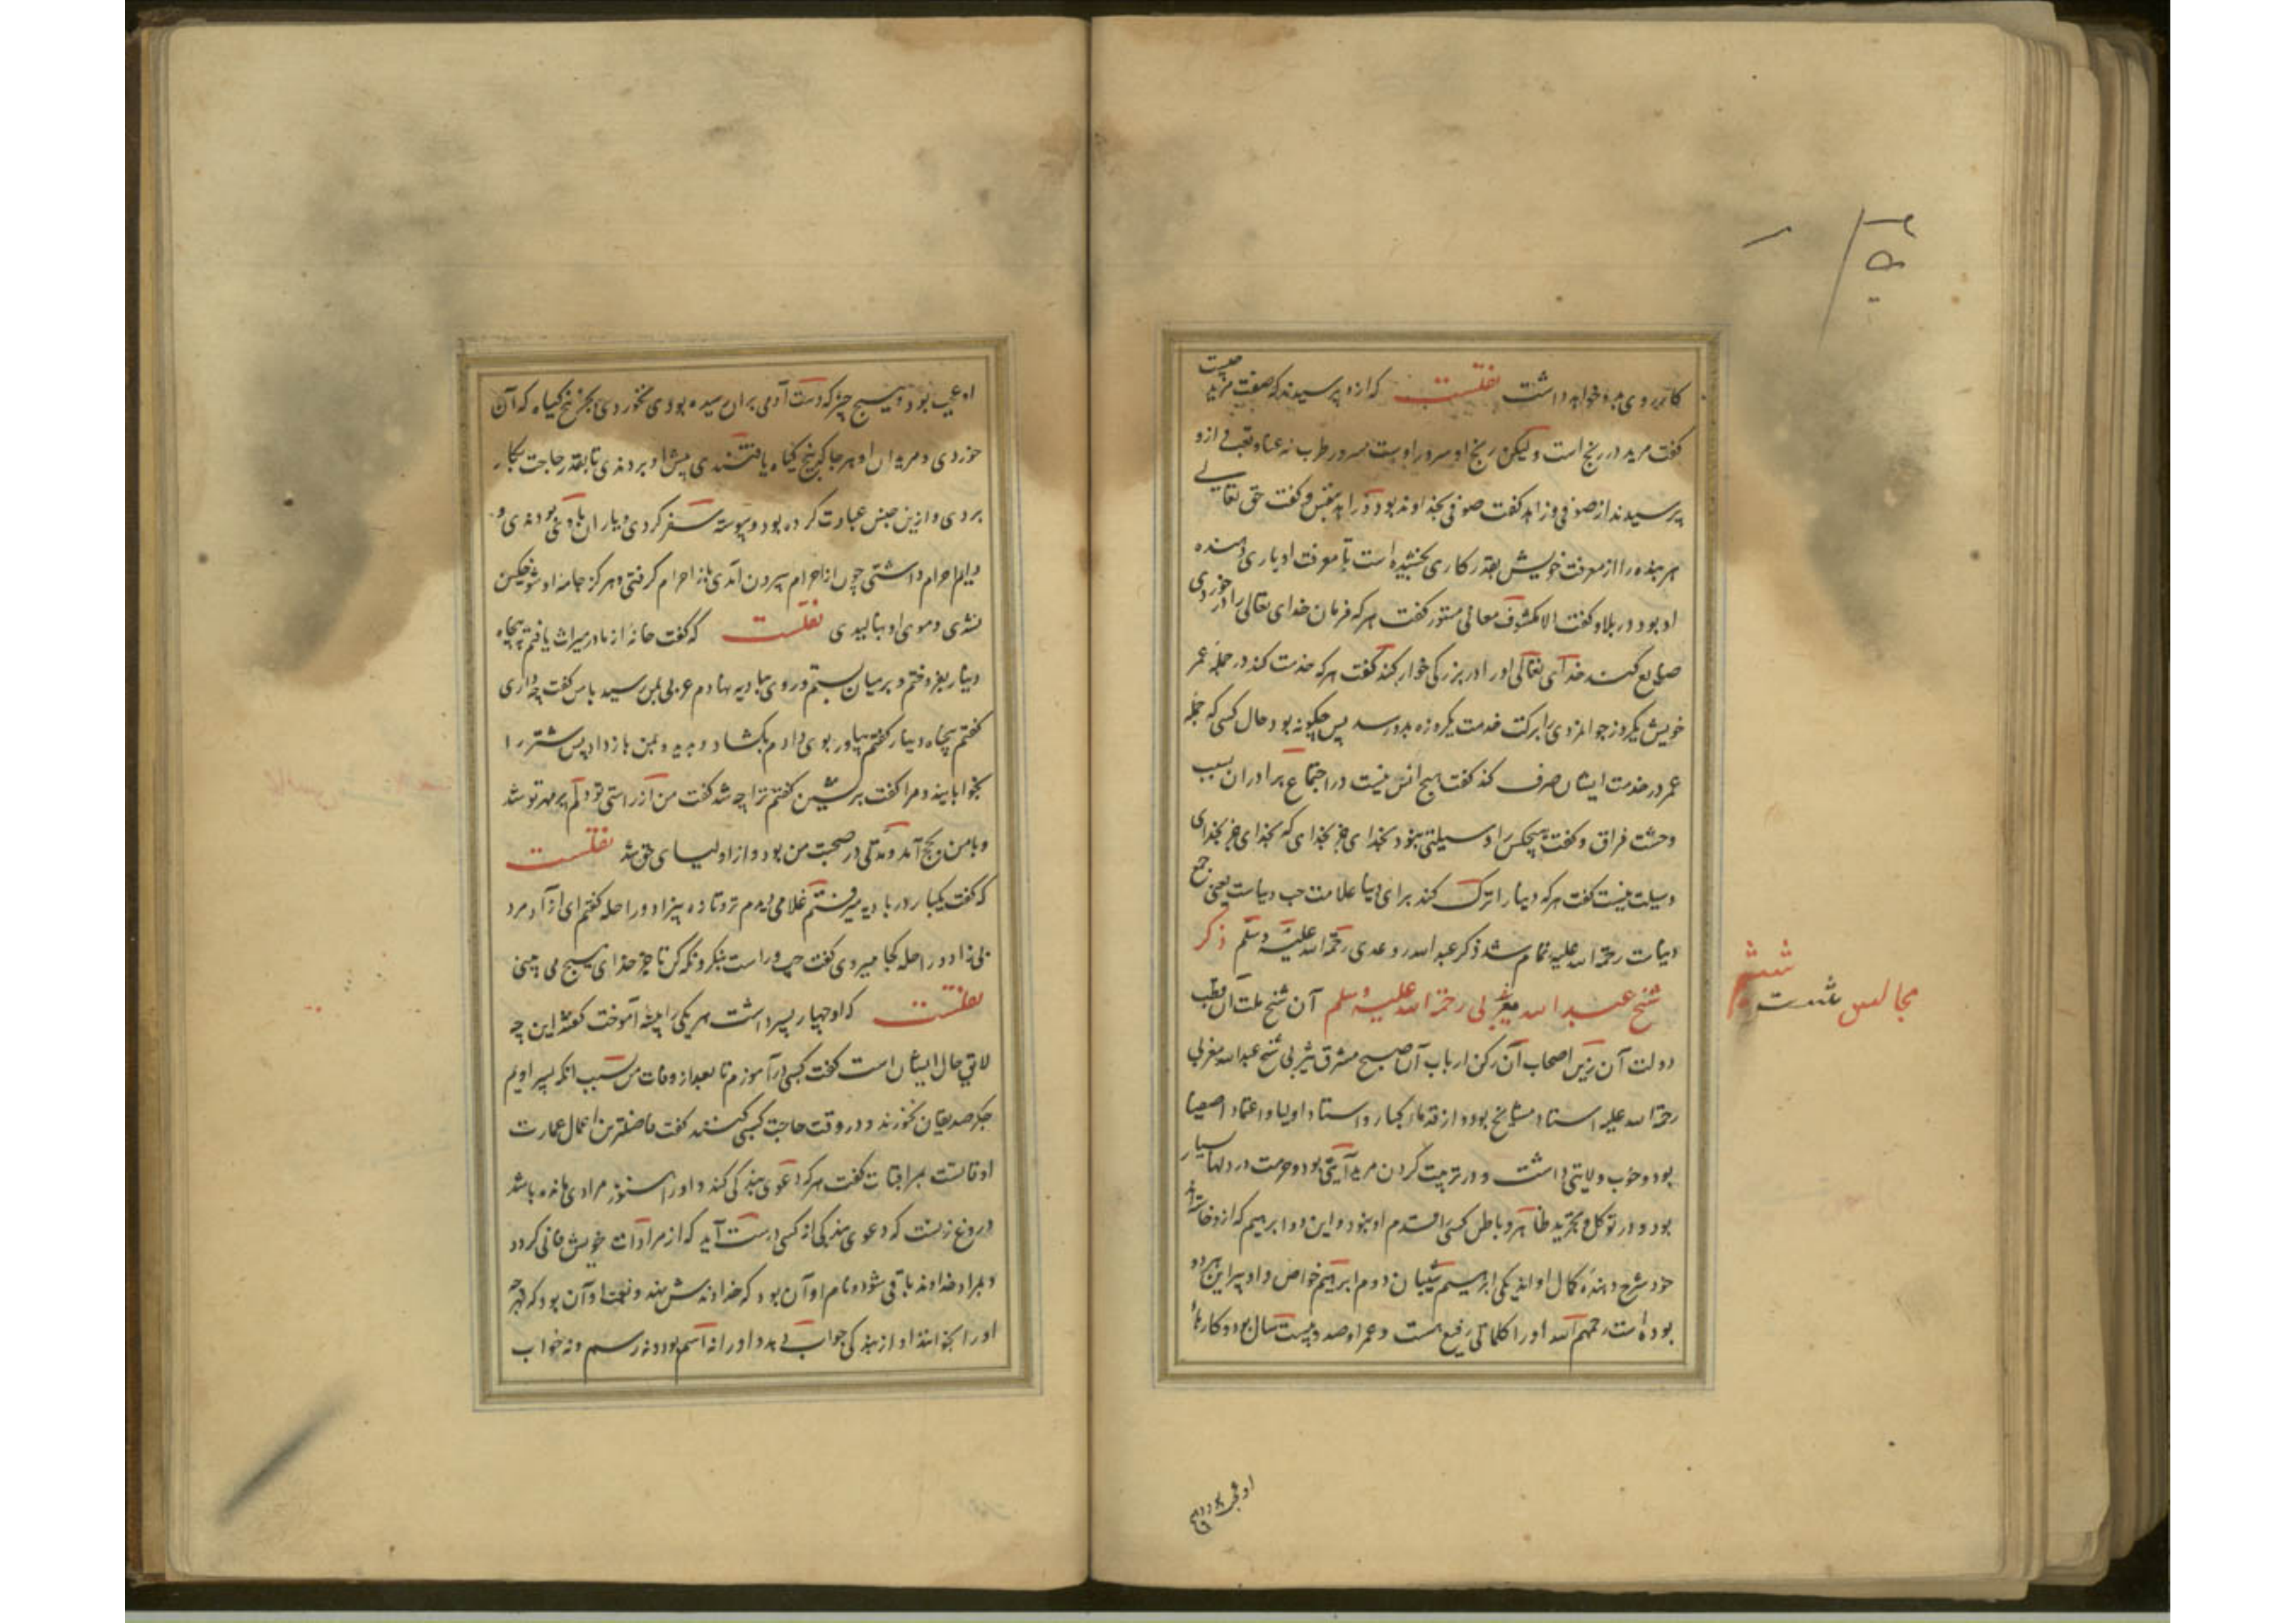 کار روی بدو خواهد داشت نقلست که ازو پرسیدند که صفت مرید چیست
گفت مرید در رنج است ولیکن رنج او سرور اوست سرور طرب نه عنا و تعب ازو
پرسیدند از صوفی و زاهد گفت صوفی بخداوند بود و زاهد بنفس و گفت حق تعالی
هر بنده را از معرفت خویش بقدر کاری بخشیده است تا معرفت او یاری دهنده
او بود در بلا و گفت الا مکشوف معانی مستور گفت هر که فرمان خدای تعالی را در خوردی
ضایع کند خدای تعالی او را در بزرگی خوار کند گفت هر که خدمت کند در جمله عمر
خویش یکروز جوانمردی را برکت خدمت یکروزه بدو رسد پس چگونه بود حال کسی که جمله
عمر در خدمت ایشان صرف کند گفت هیچ انس نیست در اجتماع برادران بسبب
وحشت فراق و گفت هیچکس را وسیلتی نبود بخدای جز بخدای که بخدای جز بخدای
وسیلت نیست گفت هر که دنیا را ترک کند برای دنیا علامت حب دنیاست یعنی جمع
دنیات رحمة الله علیه تمام شد ذکر عبدالله رودعدی رحمة الله علیه وسلم ذکر
شیخ عبدالله مغربی رحمة الله علیه وسلم آن شیخ ملت آن قطب
دولت آن زین اصحاب آن رکن ارباب آن صبح مشرق یثربی شیخ عبدالله مغربی
رحمة الله علیه استاد مشایخ بود و از قدماء کبار و استاد اولیا و اعتماد اصفیا
بود و خوب ولایتی داشت و در تربیت کردن مرید آیتی بود و حرمت در دلها بسیار
بود و در توکل و تجرید ظاهر و باطن کسی را قدم او نبود و این دو ابراهیم که ازو خاسته‌اند
خود شرح دهنده کمال او اند یکی ابراهیم شیبان و دوم ابراهیم خواص و او پیر این هر دو
بوده است رحمهم الله او را کلماتی رفیع هست و عمر او صد و بیست سال بود و کارهاء
مجالس شست
ششم
او عجب بود و هیچ چیز که دست آدمی بران رسیده بودی نخوردی بجز بیخ گیاه که آن
خوردی و مریدان او هر جا که بیخ گیاه یافتندی پیش او بردندی تا بقدر حاجت بکار
بردی و ازین جنس عبادت کرده بود و پیوسته سفر کردی و یاران با وی بودندی و
دایم احرام داشتی چون از احرام بیرون آمدی باز احرام گرفتی و هرگز جامه او شوخگین
نشدی و موی او نبالیدی نقلست که گفت خانه از مادر میراث یافتم بپنجاه
دینار بفروختم و بر میان بستم و روی ببادیه نهادم عربی بمن رسید با من گفت چه داری
گفتم پنجاه دینار گفتم بیاور بوی دادم بگشاد و بدید و بمن باز داد پس شتر را
بخوابانید و مرا گفت برنشین گفتم ترا چه شد گفت من از راستی تو دلم پر مهر تو شد
و با من بحج آمد و مدتی در صحبت من بود و از اولیای حق شد نقلست
که گفت یکبار در بادیه میرفتم غلامی دیدم تروتازه بی‌زاد و راحله گفتم ای آزاد مرد
بی زاد و راحله کجا میروی گفت چپ و راست بنگر و نگه کن تا جز خدای هیچ می بینی
نقلست که او چهار پسر داشت هر یکی را پیشه آموخت گفتند این چه
لایق حال ایشان است گفت کسبی درآموزم تا بعد از وفات من بسبب انکه پسر اویم
جگر صدیقان نخورند و در وقت حاجت کسبی کنند گفت فاضلترین اعمال عمارت
اوقاتست بمراقبات گفت هر که دعوی بندگی کند و او را هنوز مرادی مانده باشد
دروغ زنست که دعوی بندگی از کسی درست آید که از مرادات خویش فانی گردد
و بمراد خداوند باقی شود و نام او آن بود که خداوندش نهد و نعت او آن بود که بهرچه
او را بخوانند او از بندگی جواب دهد و او را نه اسم بود و نه رسم و نه جواب